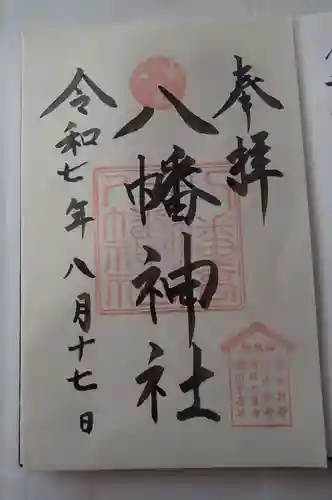 奉拝
八幡神社
令和七年八月十七日